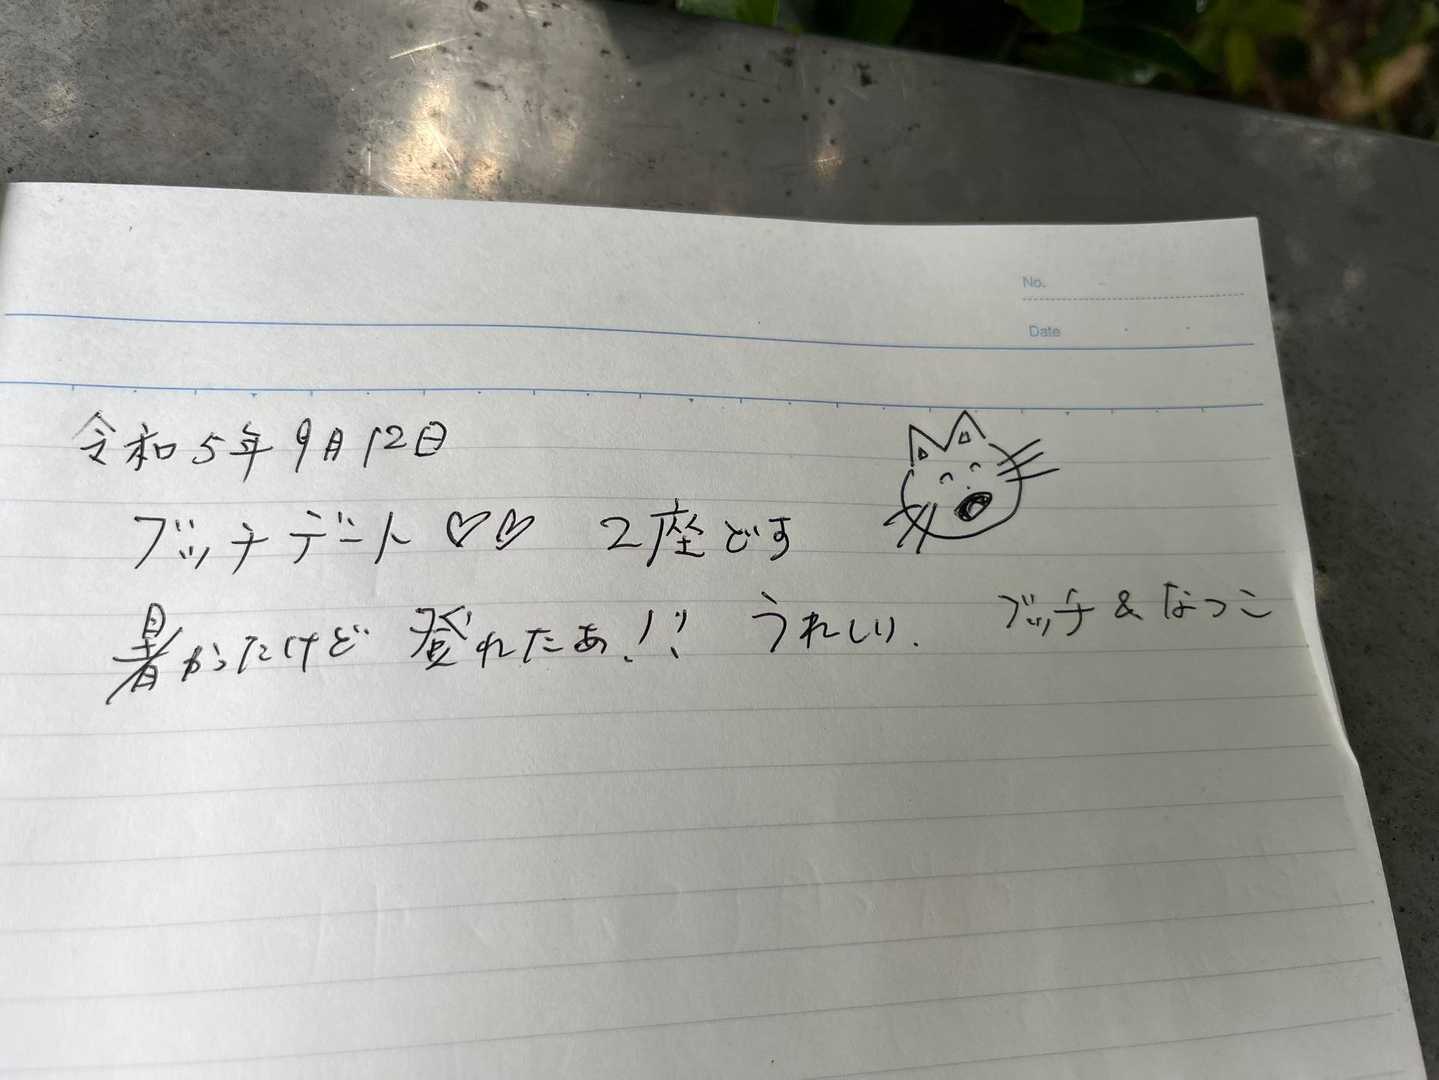 No.
Date
令和5年9月12日
ブッチデート♡♡ 2座どす
暑かったけど 登れたあ!! うれしい. ブッチ&なつこ